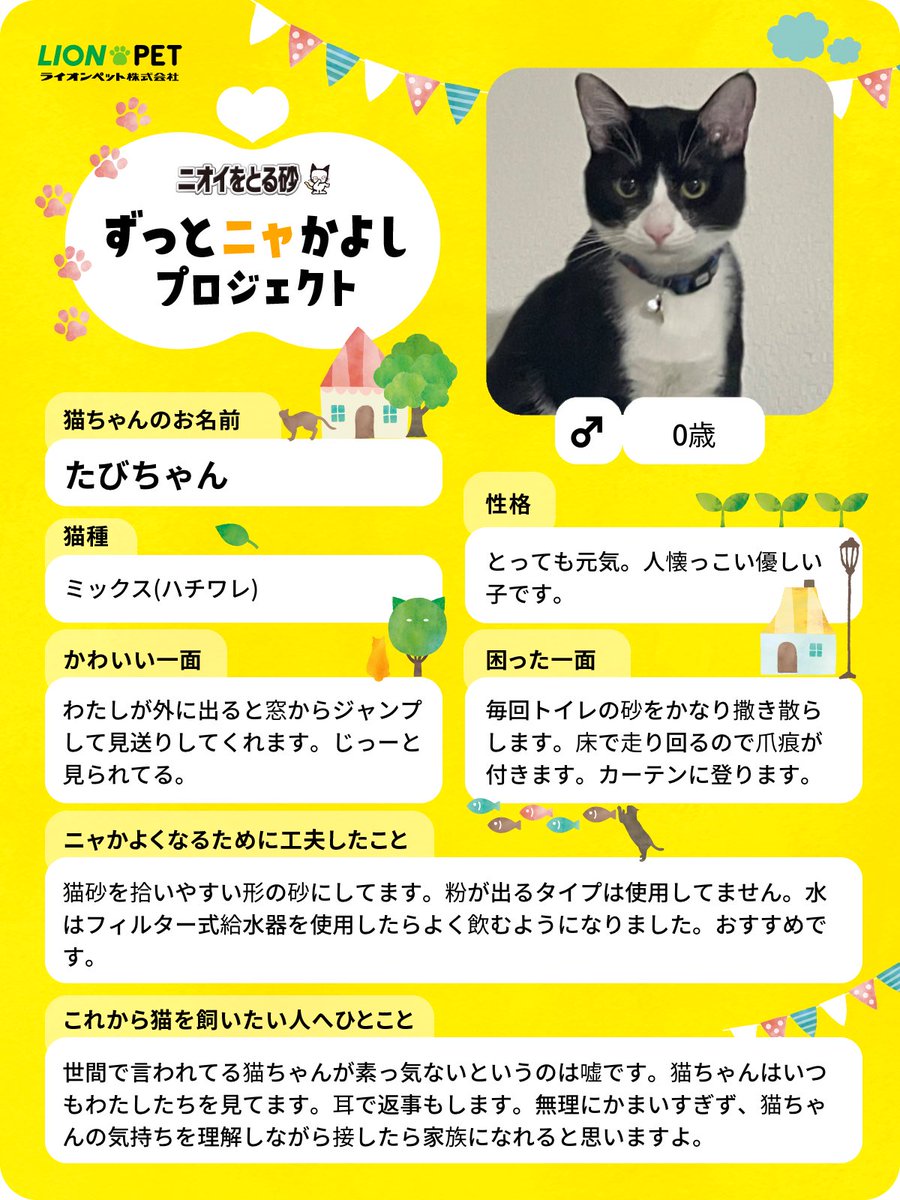 LION PET
ライオンペット株式会社
ニオイをとる砂
ずっとニャかよし
プロジェクト
♂
0歳
猫ちゃんのお名前
たびちゃん
猫種
ミックス(ハチワレ)
性格
とっても元気。人懐っこい優しい
子です。
かわいい一面
わたしが外に出ると窓からジャンプ
して見送りしてくれます。じっーと
見られてる。
困った一面
毎回トイレの砂をかなり撒き散ら
します。床で走り回るので爪痕が
付きます。カーテンに登ります。
ニャかよくなるために工夫したこと
猫砂を拾いやすい形の砂にしてます。粉が出るタイプは使用してません。水
はフィルター式給水器を使用したらよく飲むようになりました。おすすめで
す。
これから猫を飼いたい人へひとこと
世間で言われてる猫ちゃんが素っ気ないというのは嘘です。猫ちゃんはいつ
もわたしたちを見てます。耳で返事もします。無理にかまいすぎず、猫ちゃ
んの気持ちを理解しながら接したら家族になれると思いますよ。